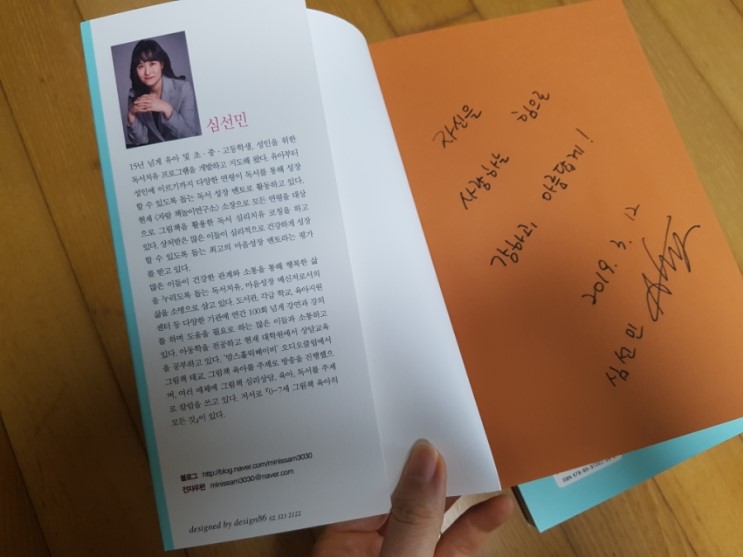 심선민
15년 넘게 유아 및 초·중·고등학생, 성인을 위한
독서치유 프로그램을 개발하고 지도해 왔다. 유아부터
성인에 이르기까지 다양한 연령이 독서를 통해 성장
할 수 있도록 돕는 독서 성장 멘토로 활동하고 있다.
현재 <자람 책놀이연구소> 소장으로 모든 연령을 대상
으로 그림책을 활용한 독서 심리치유 코칭을 하고
있다. 상처받은 많은 이들이 심리적으로 건강하게 성장
할 수 있도록 돕는 최고의 마음성장 멘토라는 평가
를 받고 있다.
많은 이들이 건강한 관계와 소통을 통해 행복한 삶
을 누리도록 돕는 독서치유, 마음성장 메신저로서의
삶을 소명으로 삼고 있다. 도서관, 각급 학교, 육아지원
센터 등 다양한 기관에 연간 100회 넘게 강연과 강의
를 하며 도움을 필요로 하는 많은 이들과 소통하고
있다. 아동학을 전공하고 현재 대학원에서 상담교육
을 공부하고 있다. '맘스홀릭베이비' 오디오클립에서
그림책 태교, 그림책 육아를 주제로 방송을 진행했으
며, 여러 매체에 그림책 심리상담, 육아, 독서를 주제
로 칼럼을 쓰고 있다. 저서로 『0~7세 그림책 육아의
모든 것』이 있다.
블로그 http://blog.naver.com/minissam3030
전자우편 minissam3030@naver.com
designed by design86 02 323 2122
자신을
사랑하는 힘으로
강하고 아름답게!
2019. 3. 12
심선민